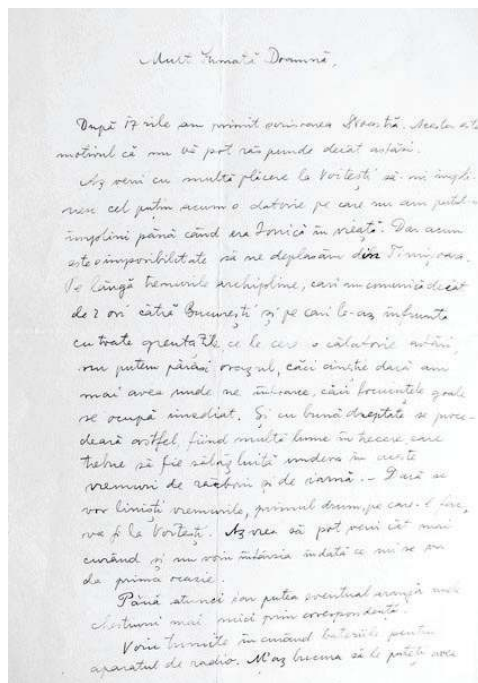 Mult Stimată Doamnă,
După 17 zile am primit scrisoarea Dvoastră. Acesta este
motivul că nu vă pot răspunde decât astăzi.
Aș veni cu multă plăcere la Voitești să-mi împli-
nesc cel puțin acum o datorie pe care nu am putut-o
împlini până când era Ionică în vieață. Dar acum
este o imposibilitate să ne deplasăm din Timișoara.
Pe lângă trenurile archipline, cari nu comunică decât
de 2 ori către București și pe cari le-aș înfrunta
cu toate greutățile ce le cere o călătorie astăzi,
nu putem părăsi orașul, căci cine știe dacă am
mai avea unde ne întoarce, căci locuințele goale
se ocupă imediat. Și cu bună dreptate se proce-
dează astfel, fiind multă lume în trecere care
trebue să fie sălășluită undeva în aceste
vremuri de războiu și de iarnă. – Dacă se
vor liniști vremurile, primul drum, pe care-l fac,
va fi la Voitești. Aș vrea să pot veni cât mai
curând și nu voiu întârzia îndată ce mi se va
da prima ocazie.
Până atunci s'ar putea eventual aranja unele
chestiuni mai mici prin corespondență.
Voiu trimite în curând bateriile pentru
aparatul de radio. M'aș bucura să le puteți avea